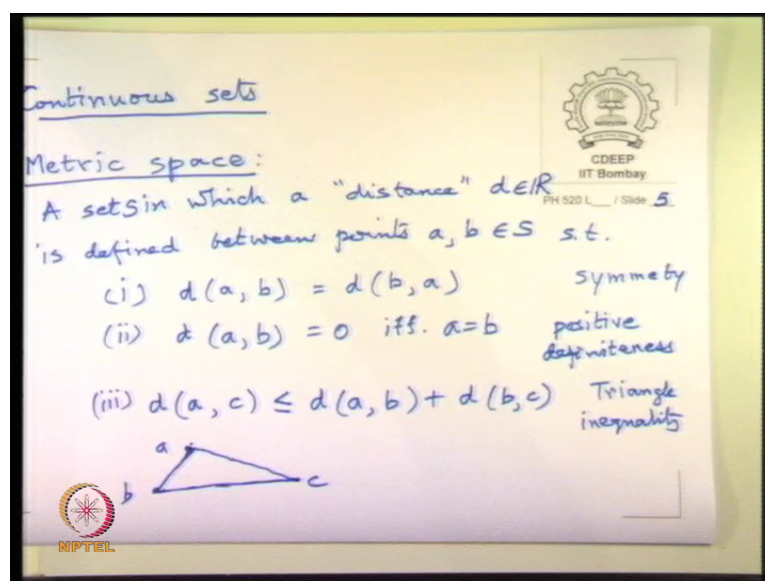 Continuous sets
CDEEP
IIT Bombay
PH 520 L___ / Slide 5
Metric space:
A set S in which a "distance" d∈ℝ
is defined between points a, b ∈ S s.t.
(i) d(a, b) = d(b, a) symmety
(ii) d(a, b) = 0 iff. a=b positive definiteness
(iii) d(a, c) ≤ d(a, b) + d(b, c) Triangle inequality
a
b
c
NPTEL